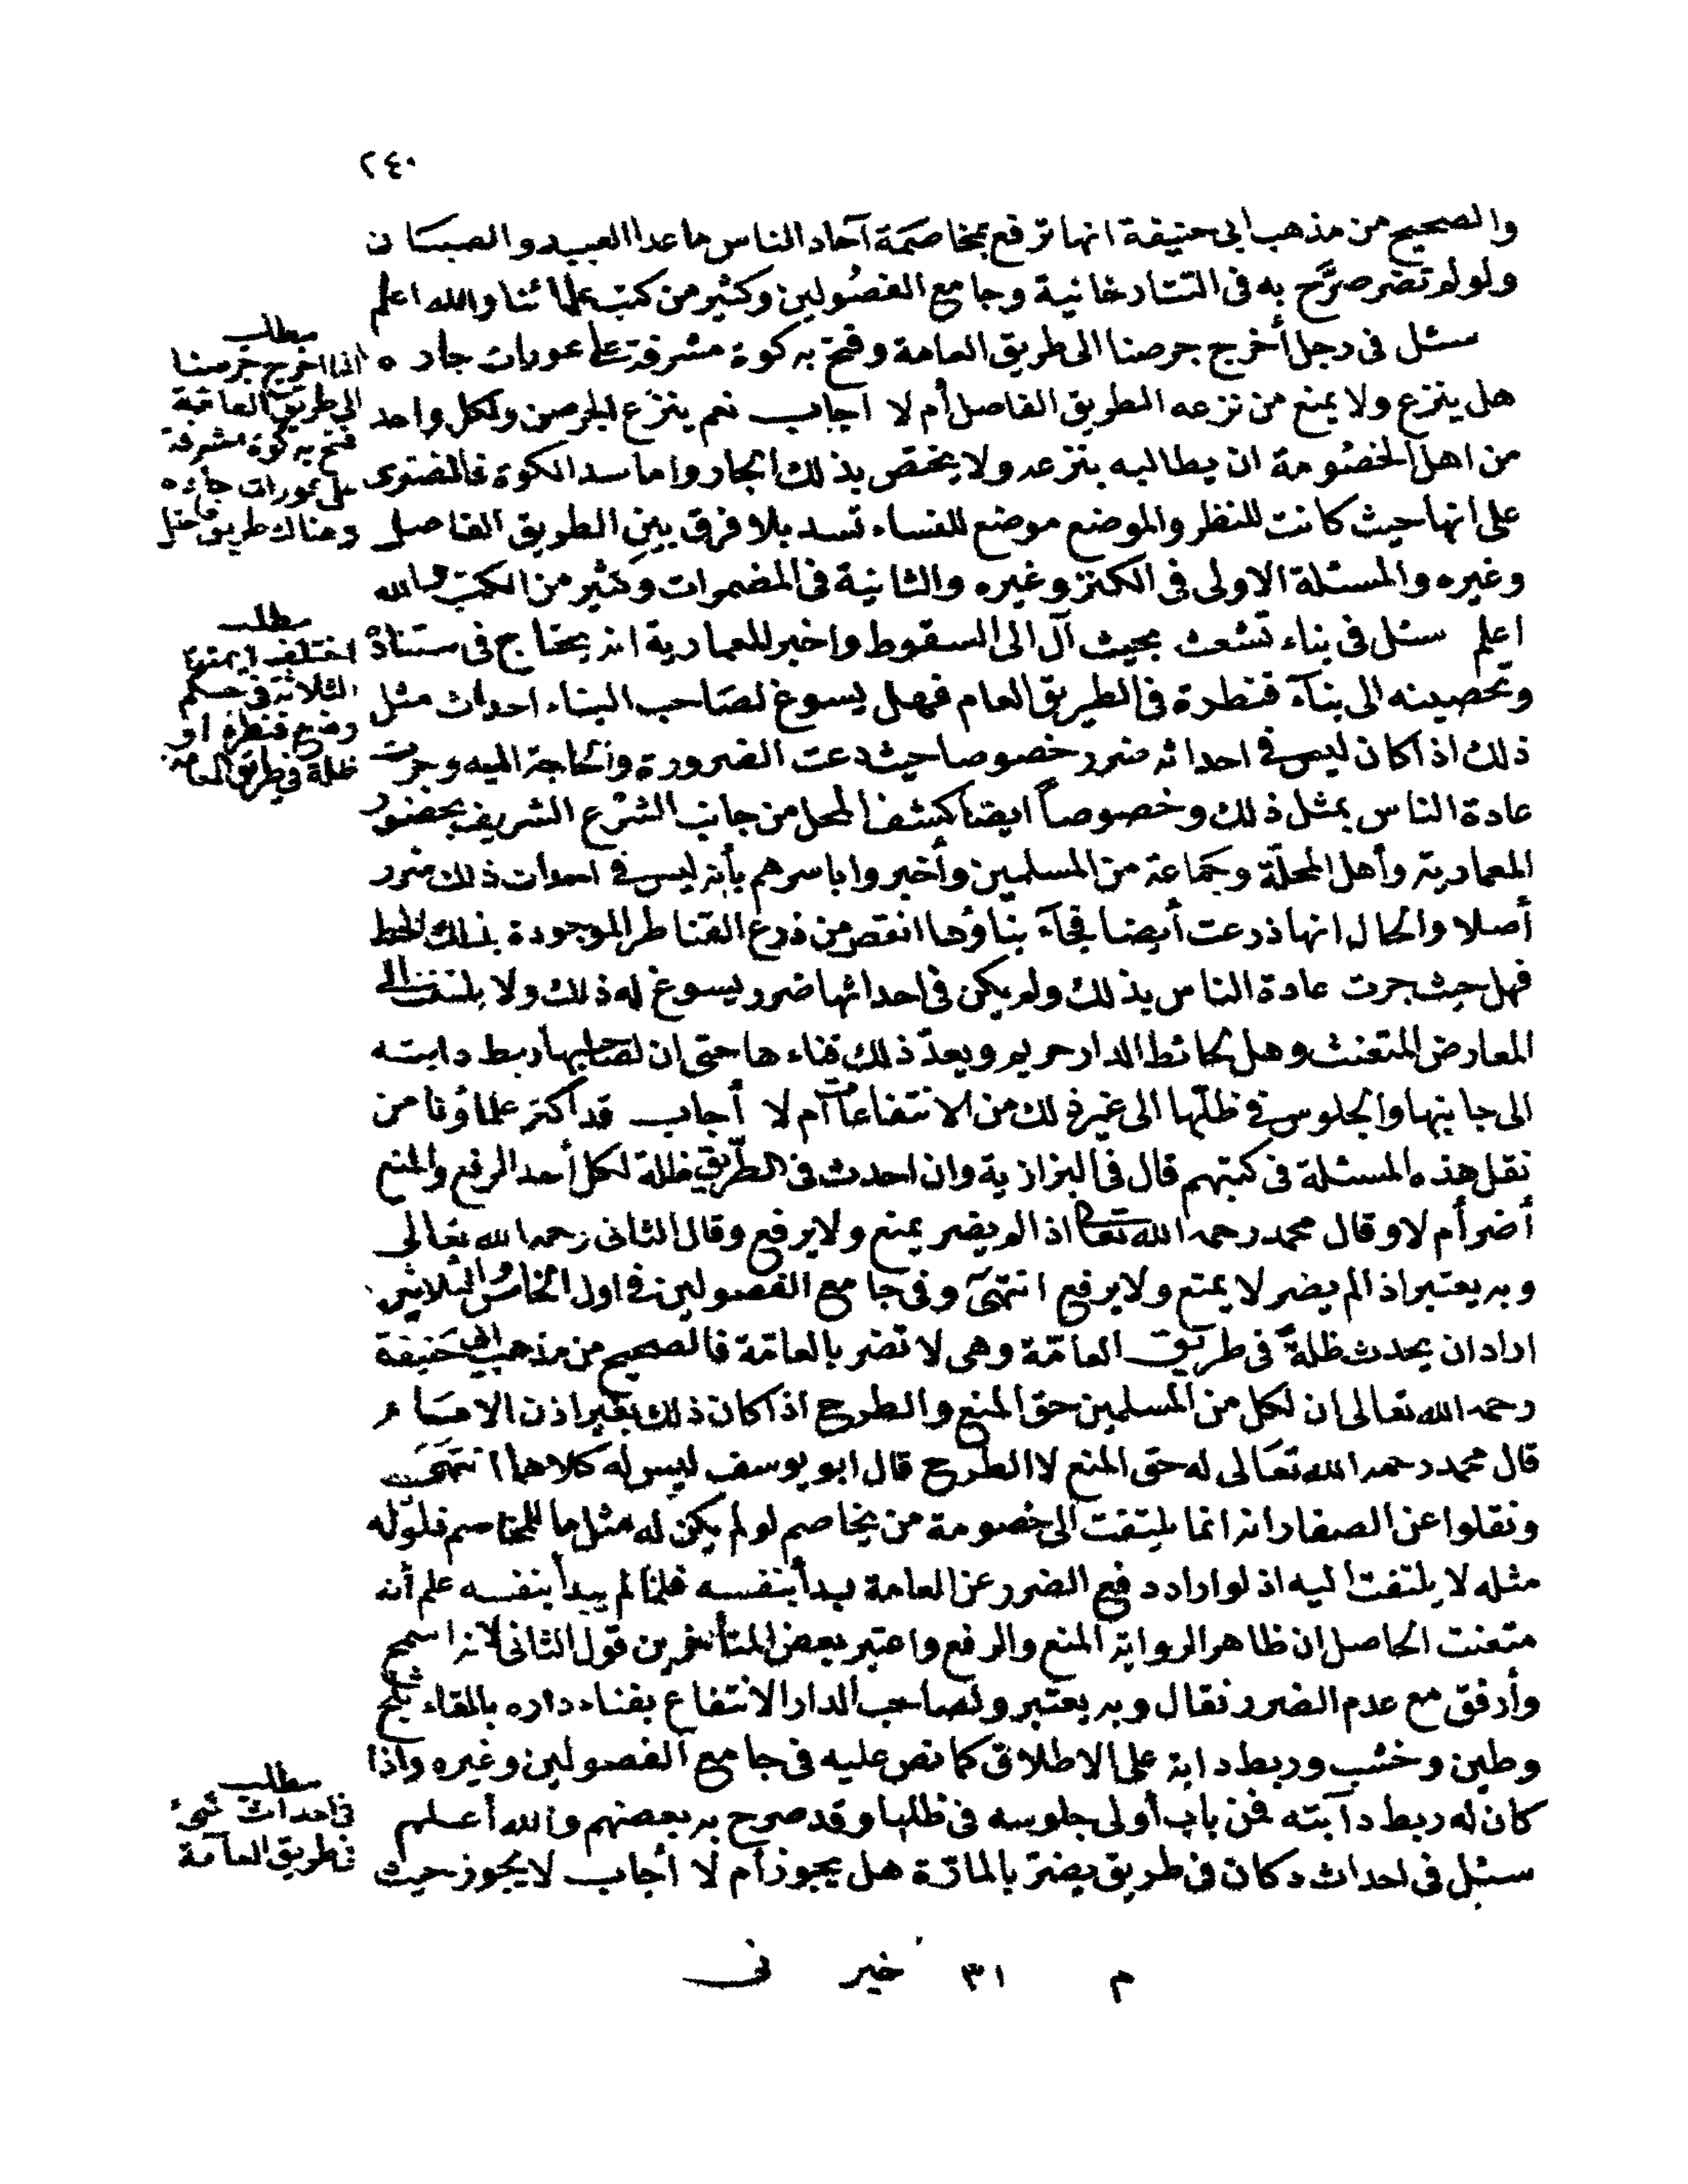 ٢٤٠
والصحيح من مذهب أبى حنيفة انها ترفع بمخاصمة آحاد الناس ما عدا العبيد والصبيان
ولو لم تضر صرَّح به فى التتارخانية وجامع الفصُولين وكثير من كتب علمائنا والله اعلم
سئل فى رجل أخرج جرصنا الى طريق العامة وفتح به كوة مشرفة على عورات جاره
هل ينزع ولا يمنع من نزعه الطريق الفاصل أم لا اجاب نعم ينزع الجرصن ولكل واحد
من اهل الخصُومة ان يطالبه بنزعه ولا يختص بذلك الجار واما سد الكوة فالفتوى
على انها حيث كانت للنظر والموضع موضع للنساء تسد بلا فرق بين الطريق الفاصل
وغيره والمسئلة الاولى فى الكنز وغيره والثانية فى المضمرات وكثير من الكتب والله
اعلم سئل فى بناء تشعث بحيث آل الى السقوط واخبر المعمارية انه يحتاج فى ستناده
وتحصينه الى بنآء قنطرة فى الطريق العام فهل يسوغ لصَاحب البناء احداث مثل
ذلك اذا كان ليس فى احداثه ضرر خصوصا حيث دعت الضرورة والحاجة اليه وجرت
عادة الناس بمثل ذلك وخصوصاً ايضا كشف المحل من جانب الشرْع الشريف بحضور
المعمارية وأهل المحلّة وجَمَاعة من المسلمين وأخبروا باسرهم بأنه ليس فى احداث ذلك ضرر
أصلا والحال انها ذرعت أيضا فجآء بناؤها انقص من ذرع القناطر الموجودة بذلك الخط
فهل حيث جرت عادة الناس بذلك ولم يكن فى احداثها ضرر يسوغ له ذلك ولا يلتفت الى
المعارض المتعنت وهل لحائط الدار حريم ويعدّ ذلك فناء ها حتى ان لصاحبها ربط دابته
الى جانبها والجلوس فى ظلّها الى غير ذلك من الانتفاعات أم لا أجاب قد أكثر علماؤنا من
نقل هذه المسئلة فى كتبهم قال فى البزازية وان احدث فى الطّريق ظلة لكل أحد الرفع والمنع
أضر أم لا وقال محمد رحمه الله تعالى اذا لم يضر يمنع ولا يرفع وقال الثانى رحمه الله تعَالى
وبه يعتبر اذا لم يضر لا يمنع ولا يرفع انتهىَ وفى جامع الفصولين فى اول الخامس والثلاثين
اراد ان يحدث ظلةً فى طريق العامّة وهى لا تضر بالعامّة فالصحيح من مذهب أبى حَنيفة
رحمه الله تعالى ان لكل من المسلمين حق المنع والطرح اذا كان ذلك بغير اذن الامَام
قال محمد رحمه الله تعَالى له حق المنع لا الطرح قال ابو يوسف ليس له كلاهما انتهَىَ
ونقلوا عن الصفار انه انما يلتفت الى خصومة من يخاصم لو لم يكن له مثل ما للمخاصم فلو له
مثله لا يلتفت اليه اذ لو اراد دفع الضرر عن العامة لبدأ بنفسه فلمّا لم يبدأ بنفسه علم أنه
متعنت الحاصل ان ظاهر الرواية المنع والرفع واعتبر بعض المتأخرين قول الثانى لانه اسمح
وأرفق مع عدم الضرر فقال وبه يعتبر ولصاحب الدار الانتفاع بفناء داره بالقاء ثلج
وطين وخشب وربط دابة على الاطلاق كما نص عليه فى جامع الفصولين وغيره واذا
كان له ربط دآبته فمن باب أولى جلوسه فى ظلها وقد صرح به بعضهم والله أعلم
سئل فى احداث دكان فى طريق يضرّ بالمارّة هل يجوز أم لا أجاب لا يجوز حيث
مطلب
اذا اخرج جرصنا
الى طريق العامّة
فتح به كوة مشرفة
على عورات جاره
وهناك طريق فاصل
مطلب
اختلف ايمتنا
الثلاثة فى حكم
وضع قنطرة او
ظلة فى طريق العامه
مطلب
فى احداث شىء
فى طريق العآمة
م ٣١ خير نى